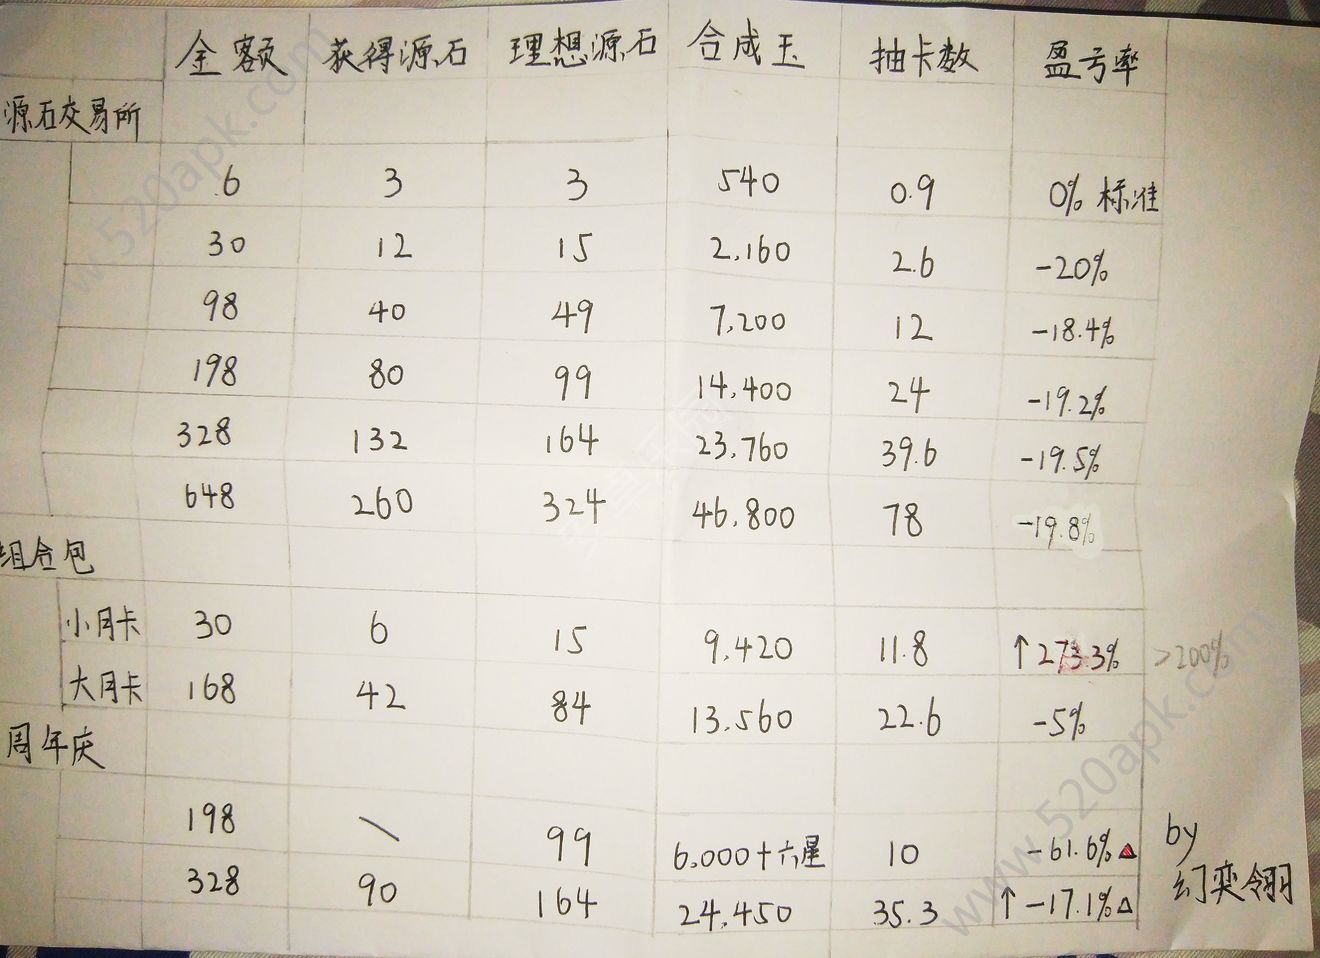 金额 获得源石 理想源石 合成玉 抽卡数 盈亏率
源石交易所
6 3 3 540 0.9 0% 标准
30 12 15 2,160 2.6 -20%
98 40 49 7,200 12 -18.4%
198 80 99 14,400 24 -19.2%
328 132 164 23,760 39.6 -19.5%
648 260 324 46,800 78 -19.8%
组合包
小月卡 30 6 15 9,420 11.8 ↑273.3% >200%
大月卡 168 42 84 13,560 22.6 -5%
周年庆
198 \ 99 6,000+六星 10 -61.6%▲
328 90 164 24,450 35.3 ↑-17.1%△
by
幻奕翎
www.520apk.com
www.520apk.com